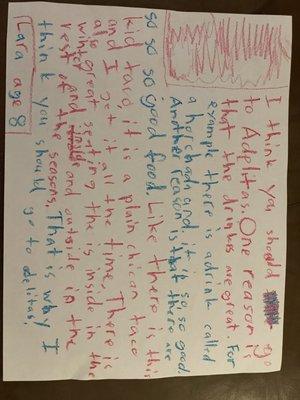 I think you should go
to Adelitas. One reason is
that the drinks are great. For
example there is a drink called
a holchada and it is so good
Another reason is that there are
so so so good food. Like there is this
kid taro, it is a plain chican taco
and I get it all the time, There is
also great senting the is inside in the
winter and and outside in the
rest of the seasons, That is why I
think you should go to adelitas!
Cara age 8